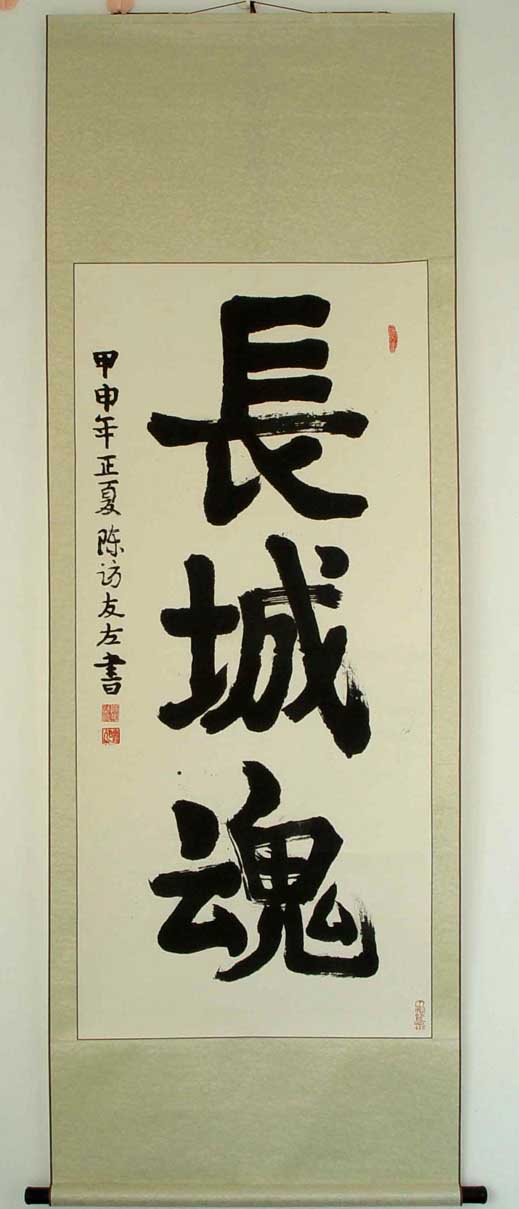 長城魂
甲申年正夏陈访友左書